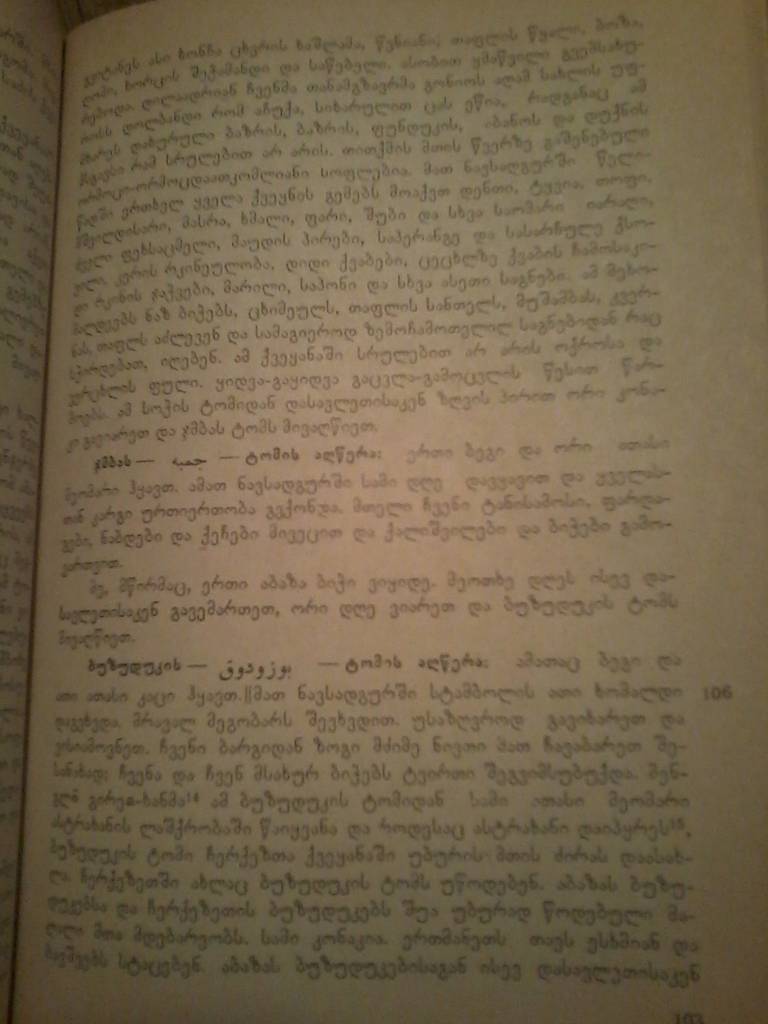 გვიტანეს ასი ხონჩა ცხვრის ხაშლამა, წვნიანი, თაფლის წყალი, ბოზა,
ღომი, ხორცის შეჭამანდი და საწებელი. ასობით ყმაწვილი გვემსახუ-
რებოდა. დილაადრიან ჩვენმა თანამგზავრმა გონიოს აღამ სახლის უფ-
როსს დოლბანდი რომ აჩუქა, სიხარულით ცას ეწია, რადგანაც ამ
მხარეს დახურული ბაზრის, ბაზრის, ფუნდუკის, აბანოს და დუქნის
მსგავსი რამ სრულებით არ არის. თითქმის მთის წვერზე გაშენებული
ორმოცი-ორმოცდაათკომლიანი სოფლებია. მათ ნავსადგურში წელი-
წადში ერთხელ ყველა ქვეყნის გემებს მოაქვთ დენთი, ტყვია, თოფი,
მშვილდისარი, მასრა, ხმალი, ფარი, შუბი და სხვა საომარი იარაღი,
ძველი ფეხსაცმელი, მაუდის პირები, საპერანგე და სასარჩულე ქსო-
ვილი, კერის რკინეულობა, დიდი ქვაბები, ცეცხლზე ქვაბის ჩამოსაკი-
დი რკინის ჯაჭვები, მარილი, საპონი და სხვა ასეთი საგნები. ამ მეხო-
მალდეებს ნაზ ბიჭებს, ცხიმეულს, თაფლის სანთელს, მუშამბას, კვერ-
ნას, თაფლს აძლევენ და სამაგიეროდ ზემოჩამოთვლილ საგნებიდან რაც
სჭირდებათ, იღებენ. ამ ქვეყანაში სრულებით არ არის ოქროსა და
ვერცხლის ფული. ყიდვა-გაყიდვა გაცვლა-გამოცვლის წესით წარ-
მოებს. ამ სოჭის ტომიდან დასავლეთისაკენ ზღვის პირით ორი კონა-
კი გავიარეთ და ჯმბას ტომს მივაღწიეთ.
ჯმბას — جمبه — ტომის აღწერა: ერთი ბეგი და ორი ათასი
მეომარი ჰყავთ. ამათ ნავსადგურში სამი დღე დავყავით და ყველას-
თან კარგი ურთიერთობა გვქონდა. მთელი ჩვენი ტანისამოსი, ფარდა-
გები, ნაბდები და ქეჩები მივეცით და ქალიშვილები და ბიჭები გამო-
ვართვით.
მე, მწირმაც, ერთი აბაზა ბიჭი ვიყიდე. მეოთხე დღეს ისევ და-
სავლეთისაკენ გავემართეთ, ორი დღე ვიარეთ და ბუზუდუკის ტომს
მივაღწიეთ.
ბუზუდუკის — بوزودوق — ტომის აღწერა: ამათაც ბეგი და
ათი ათასი კაცი ჰყავთ.||მათ ნავსადგურში სტამბოლის ათი ხომალდი 106
დაგვხვდა. მრავალ მეგობარს შევხვდით. უსაზღვროდ გავიხარეთ და
ვისიამოვნეთ. ჩვენი ბარგიდან ზოგი მძიმე ნივთი მათ ჩავაბარეთ შე-
სანახად; ჩვენა და ჩვენ მსახურ ბიჭებს ტვირთი შეგვიმსუბუქდა. მენ-
გლი გირეი-ხანმა¹⁴ ამ ბუზუდუკის ტომიდან სამი ათასი მეომარი
ასტრახანის ლაშქრობაში წაიყვანა და როდესაც ასტრახანი დაიპყრეს¹⁵,
ბუზუდუკის ტომი ჩერქეზთა ქვეყანაში უბურის მთის ძირას დაასახ-
ლა. ჩერქეზეთში ახლაც ბუზუდუკის ტომს უწოდებენ. აბაზას ბუზუ-
დუკებსა და ჩერქეზეთის ბუზუდუკებს შუა უბურად წოდებული მა-
ღალი მთა მდებარეობს. სამი კონაკია. ერთმანეთს თავს ესხმიან და
ბავშვებს სტაცებენ. აბაზას ბუზუდუკებისაგან ისევ დასავლეთისაკენ
103